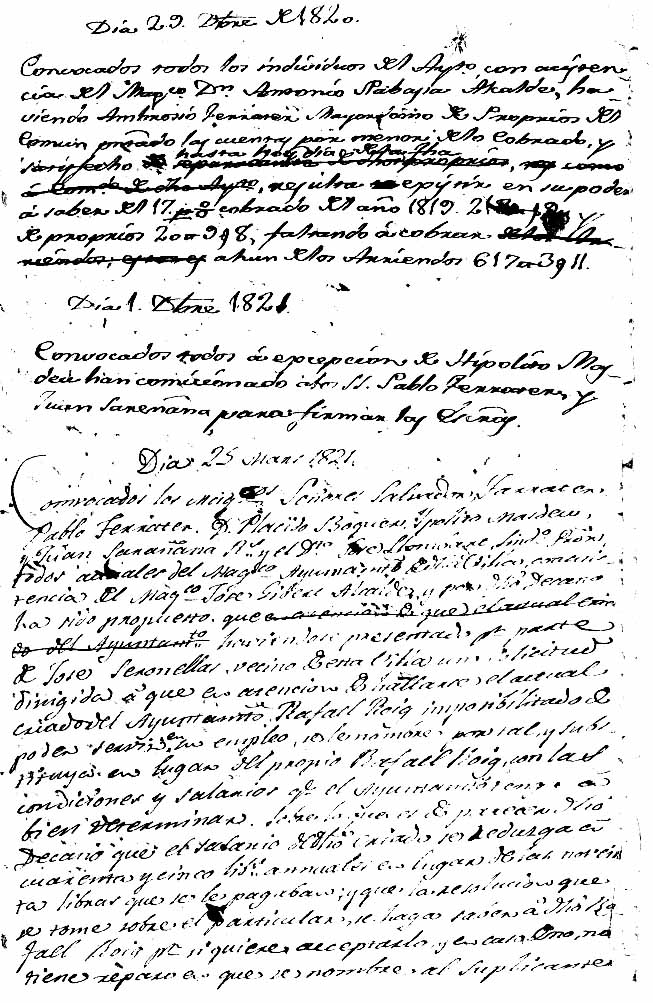 Dia 29. Dbre de 1820.
Convocados todos los individuos del Aytto con acisten
cia del Magco Dn Antonio Rabasa Alcalde, ha
viendo Ambrosio Ferrater Mayordomo de Proprios del
Comun las cuentas por menor de lo Cobrado, y
satisfecho hasta hoy dia
resulta en su poder
á saber del 17. pº cobrado del año 1819.
de proprios faltando á cobrar
ahun de los Arriendos
Dia 1. Dbre 1821.
Convocados todos á excepcion de Hipolito Mas-
deu han comicionado á los SS. Pablo Ferrater, y
Juan Sarañana para firmar las
Dia 25 Mars 1821.
Convocados los Magcos Señores Salvador Ferrater,
Pablo Ferrater, D. Placido Boquer, Ypolito Masdeu,
y Juan Sarañana Rs y el Dto Jose Sindco
todos actuales del Magco Ayuntamto de esta Villa, con acis-
tencia del Magco Jose Gibert Alcalde, y por dho Decano
ha sido propuesto que en atencion á que el actual cria-
do del Ayuntamto haviendose presentado pr parte
de Jose Seronellas vecino de esta Villa una solicitud
dirigida á que en atencion de hallarse el actual
criado del Ayuntamto Rafael Roig imposibilitado de
poder servir su empleo, se le nombre por tal, y subs-
tituya en lugar del propio Rafael Roig, con las
condiciones y salarios qe el Ayuntamto tenga á
bien determinar. Sobre lo que es de parecer dho
Decano que el salario de dho criado se reduzga en
cuarenta y cinco libs annuales en lugar de las noven
ta libras que se le pagaban, y que la resolucion que
se tome sobre el particular, se haga saber á dho Ra-
fael Roig pr si quiere acceptarlo y en caso de no, no
tiene reparo en que se nombre al suplicante